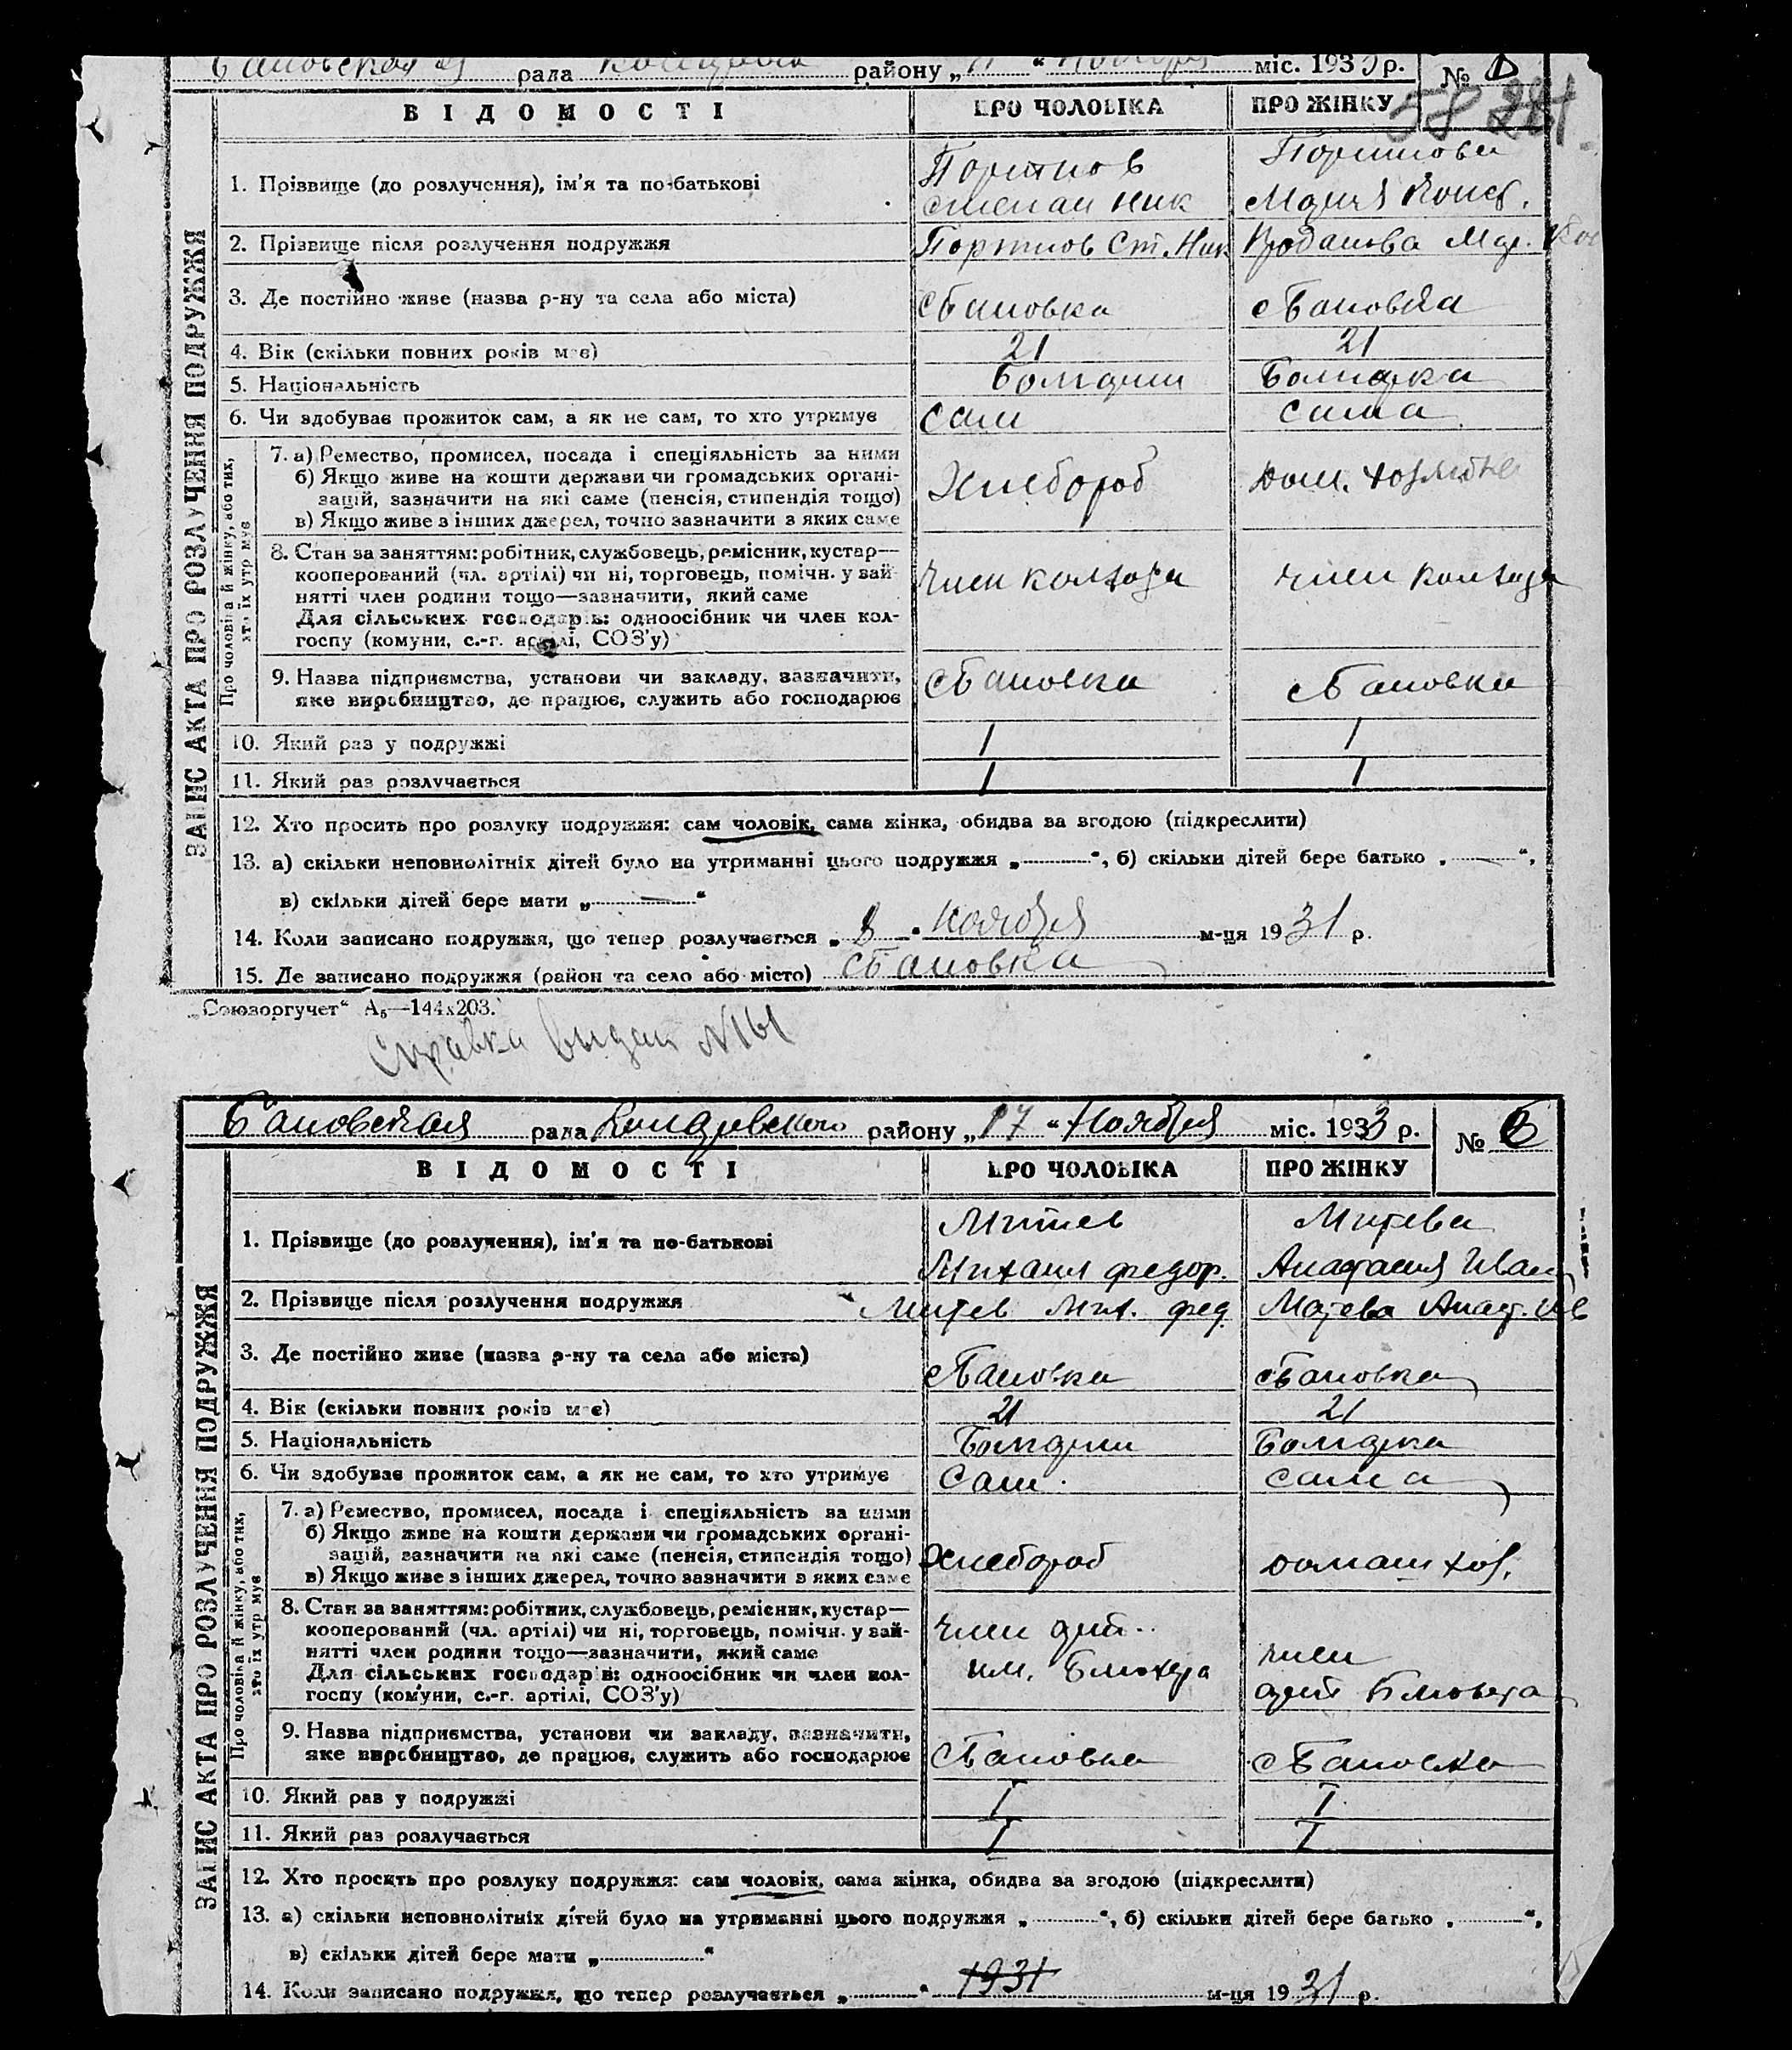 Бановская рада района „ “ Ноября міс. 1933 р. №
58 281
ВІДОМОСТІ ПРО ЧОЛОВІКА ПРО ЖІНКУ
ЗАПИС АКТА ПРО РОЗЛУЧЕННЯ ПОДРУЖЖЯ
1. Прізвище (до розлучення), ім'я та по-батькові Портнов Портнова
Степан Ник Мария Конст.
2. Прізвище після розлучення подружжя Портнов Ст. Ник Мар. Кон
3. Де постійно живе (назва р-ну та села або міста) с Бановка с Бановка
4. Вік (скільки повних років має) 21 21
5. Національність Болгарин Болгарка
6. Чи здобуває прожиток сам, а як не сам, то хто утримує сам сама
Про чоловіка й жінку, або тих, хто їх утримує
7. а) Ремество, промисел, посада і спеціяльність за ними
б) Якщо живе на кошти держави чи громадських органі-
зацій, зазначити на які саме (пенсія, стипендія тощо) Хлебороб дом. хозяйка
в) Якщо живе з інших джерел, точно зазначити з яких саме
8. Стан за заняттям: робітник, службовець, ремісник, кустар—
кооперований (чл. артілі) чи ні, торговець, помічн. у зай- член колхоза член колхоза
нятті член родини тощо—зазначити, який саме
Для сільських господарів: одноосібник чи член кол-
госпу (комуни, с.-г. артілі, СОЗ'у)
9. Назва підприємства, установи чи закладу, зазначити, с Бановка с Бановка
яке виробництво, де працює, служить або господарює
10. Який раз у подружжі 1 1
11. Який раз розлучається 1 1
12. Хто просить про розлуку подружжя: сам чоловік, сама жінка, обидва за згодою (підкреслити)
13. а) скільки неповнолітніх дітей було на утриманні цього подружжя „—“, б) скільки дітей бере батько „—“,
в) скільки дітей бере мати „—“
14. Коли записано подружжя, що тепер розлучається „8“ Ноября м-ця 1931 р.
15. Де записано подружжя (район та село або місто) с Бановка
„Союзоргучет“ А₅—144х203.
Справка выдан №161
Бановская рада района „17“ Ноября міс. 1933 р. №
ВІДОМОСТІ ПРО ЧОЛОВІКА ПРО ЖІНКУ
ЗАПИС АКТА ПРО РОЗЛУЧЕННЯ ПОДРУЖЖЯ
1. Прізвище (до розлучення), ім'я та по-батькові Митев Митева
Михаил Федор. Анастасия Иван
2. Прізвище після розлучення подружжя Митев Мих. Фед. Митева Анаст. Ив
3. Де постійно живе (назва р-ну та села або міста) с Бановка с Бановка
4. Вік (скільки повних років має) 21 21
5. Національність Болгарин Болгарка
6. Чи здобуває прожиток сам, а як не сам, то хто утримує сам сама
Про чоловіка й жінку, або тих, хто їх утримує
7. а) Ремество, промисел, посада і спеціяльність за ними
б) Якщо живе на кошти держави чи громадських органі-
зацій, зазначити на які саме (пенсія, стипендія тощо) Хлебороб домаш хоз.
в) Якщо живе з інших джерел, точно зазначити з яких саме
8. Стан за заняттям: робітник, службовець, ремісник, кустар—
кооперований (чл. артілі) чи ні, торговець, помічн. у зай- член арт.
нятті член родини тощо—зазначити, який саме член
Для сільських господарів: одноосібник чи член кол- им. Блюхера
госпу (комуни, с.-г. артілі, СОЗ'у) арт Блюхера
9. Назва підприємства, установи чи закладу, зазначити,
яке виробництво, де працює, служить або господарює с Бановка с Бановка
10. Який раз у подружжі I I
11. Який раз розлучається I I
12. Хто просить про розлуку подружжя: сам чоловік, сама жінка, обидва за згодою (підкреслити)
13. а) скільки неповнолітніх дітей було на утриманні цього подружжя „ “, б) скільки дітей бере батько „ “,
в) скільки дітей бере мати „ “
14. Коли записано подружжя, що тепер розлучається „ “ 1931 м-ця 1931 р.